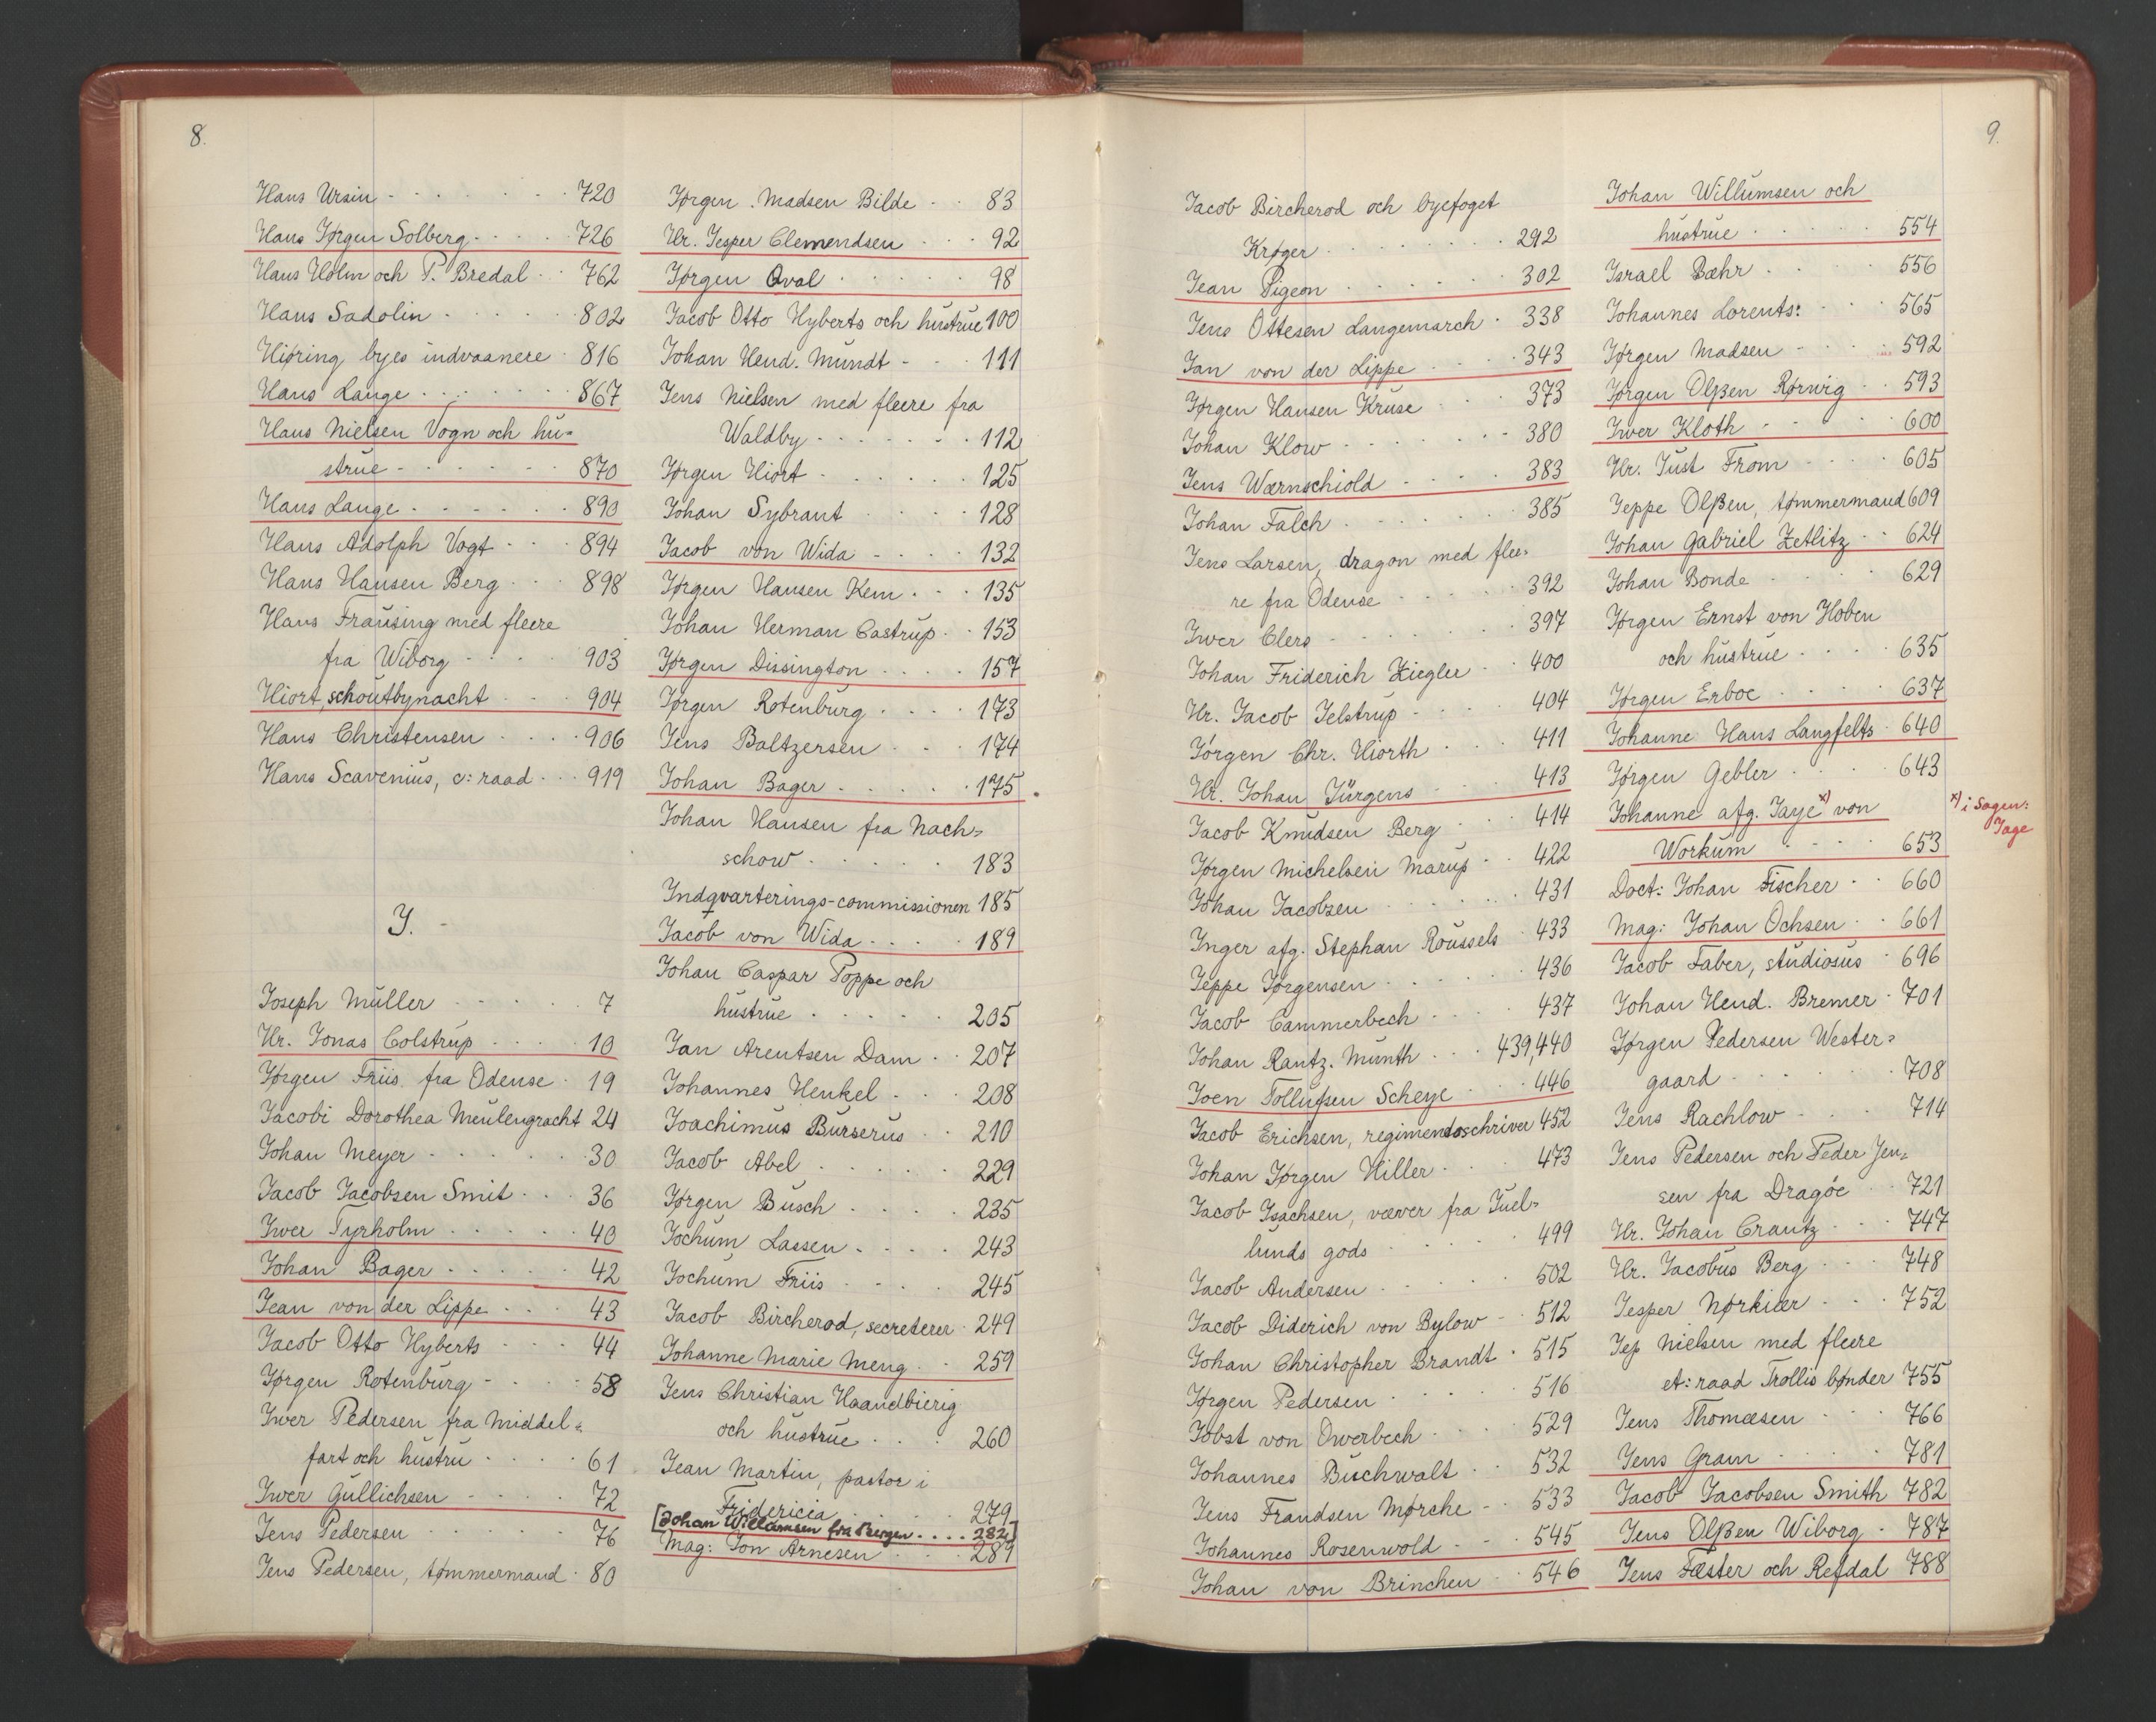 8.
Hans Ursin - - - - - - 720
Hans Jørgen Solberg - - - - 726
Hans Holm och P. Bredal - - 762
Hans Sadolin - - - - - 802
Hiøring byes indvaanere - 816
Hans Lange - - - - - - 867
Hans Nielsen Vogn och hu=
strue - - - - - - 870
Hans Lange - - - - - - 890
Hans Adolph Vogt - - - 894
Hans Hansen Berg - - - 898
Hans Frausing med fleere
fra Wiborg - - - - 903
Hiort, schoutbynacht - - - 904
Hans Christensen - - - - 906
Hans Scavenius, c: raad - - 919
J. -
Joseph Müller - - - - - 7
Hr. Jonas Colstrup - - - - 10
Jørgen Friis, fra Odense - 19
Jacobi Dorothea Meulengracht 24
Johan Meyer - - - - - - 30
Jacob Jacobsen Smit - - - 36
Iwer Tyrholm - - - - - 40
Johan Bager - - - - - 42
Jean von der Lippe - - - 43
Jacob Otto Hyberts - - - 44
Jørgen Rotenburg - - - - 58
Iwer Pedersen fra Middel=
fart och hustru - - - - 61
Iwer Gullichsen - - - - 72
Jens Pedersen - - - - - 76
Jens Pedersen, tømmermand - 80
Jørgen Madsen Bilde - - 83
Hr. Jesper Clemendsen - - - 92
Jørgen Qval - - - - - 98
Jacob Otto Hyberts och hustrue 100
Johan Hend. Mundt - - - 111
Jens Nielsen med fleere fra
Waldby - - - - - - - 112
Jørgen Hiort - - - - - - 125
Johan Sybrant - - - - 128
Jacob von Wida - - - - 132
Jørgen Hansen Kem - - - 135
Johan Herman Castrup - - 153
Jørgen Dissington - - - - 157
Jørgen Rotenburg - - - - 173
Jens Baltzersen - - - 174
Johan Bager - - - - - - 175
Johan Hansen fra Nach=
schow - - - - - 183
Indqvarterings-commissionen 185
Jacob von Wida - - - - 189
Johan Caspar Poppe och
hustrue - - - - - 205
Jan Arentsen Dam - - 207
Johannes Henkel - - - 208
Joachimus Burserus - - 210
Jacob Abel - - - - - 229
Jørgen Busch - - - - 235
Jochum Lassen - - - - 243
Jochum Friis - - - - 245
Jacob Bircherod, secreterer - 249
Johanne Marie Meng - - 259
Jens Christian Haandbierig
och hustrue - - - 260
Jean Martin, pastor i
Fridericia - - - - - 279
[Johan Willumsen fra Bergen . . . . 282]
Mag: Jon Arnesen - - - 289
9.
Jacob Bircherod och byefoget
Krøger - - - - - - - - 292
Jean Pigeon - - - - - - 302
Jens Ottesen Langemarch - 338
Jan von der Lippe - - - 343
Jørgen Hansen Kruse - - 373
Johan Klow - - - - - - 380
Jens Wærnschiold - - - - 383
Johan Falch - - - - - - 385
Jens Larsen, dragon med flee=
re fra Odense - - - - - 392
Iwer Clers - - - - - - - 397
Johan Friderich Ziegler - - 400
Hr. Jacob Jelstrup - - - - 404
Jørgen Chr. Hiorth - - - 411
Hr. Johan Jürgens - - - 413
Jacob Knudsen Berg - - - 414
Jørgen Michelsen Marup - - 422
Johan Jacobsen - - - - - - 431
Inger afg. Stephan Roussels - 433
Jeppe Jørgensen - - - - - 436
Jacob Cammerbech - - - - 437
Johan Rantz. Munth - - - 439,440
Joen Tollufsen Scheye - - - 446
Jacob Erichsen, regimendsschriver 452
Johan Jørgen Hiller - - - 473
Jacob Isachsen, væver fra Juel=
lunds gods - - - - - 499
Jacob Andersen - - - - - 502
Jacob Diderich von Bylow - - 512
Johan Christopher Brandt - 515
Jørgen Pedersen - - - - - 516
Jobst von Owerbech - - - 529
Johannes Buschwalt - - 532
Jens Frandsen Mørche - - 533
Johannes Rosenwold - - - 545
Johan von Brinchen - - 546
Johan Willumsen och
hustrue - - - - - 554
Israel Bæhr - - - - 556
Johannes Lorents: - - - 565
Jørgen Madsen - - - - 592
Jørgen Olßen Rørwig - - 593
Iwer Kloth - - - - - 600
Hr. Just From - - - - 605
Jeppe Olßen, tømmermand 609
Johan Gabriel Zetlitz - - 624
Johan Bonde - - - - - 629
Jørgen Ernst von Hoben
och hustrue - - - - 635
Jørgen Erboe - - - - 637
Johanne Hans Langfelts - 640
Jørgen Gebler - - - - 643
Johanne afg. Jaye x) von
Workum - - - - 653
x) i Sagen:
Jage
Doct: Johan Fischer - - 660
Mag: Johan Ochsen - - 661
Jacob Faber, studiosus - 696
Johan Hend. Bremer - 701
Jørgen Pedersen Wester=
gaard - - - - - - 708
Jens Rachlow - - - 714
Jens Pedersen och Peder Jen=
sen fra Dragöe - - 721
Hr. Johan Crantz - - - 747
Hr. Jacobus Berg - - - 748
Jesper Nørkiær - - - 752
Jep Nielsen med fleere
et: raad Trollis bønder 755
Jens Thomæsen - - - 766
Jens Gram - - - - - 781
Jacob Jacobsen Smith 782
Jens Olßen Wiborg - 787
Jens Fæster och Refdal 788